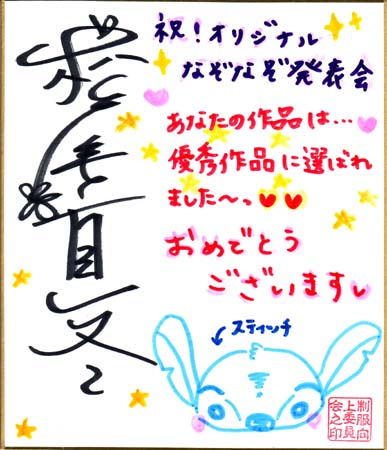 祝!オリジナル
なぞなぞ発表会
あなたの作品は…
優秀作品に選ばれ
ました〜っ
おめでとう
ございます
スティッチ
制服向
上委員
会之印